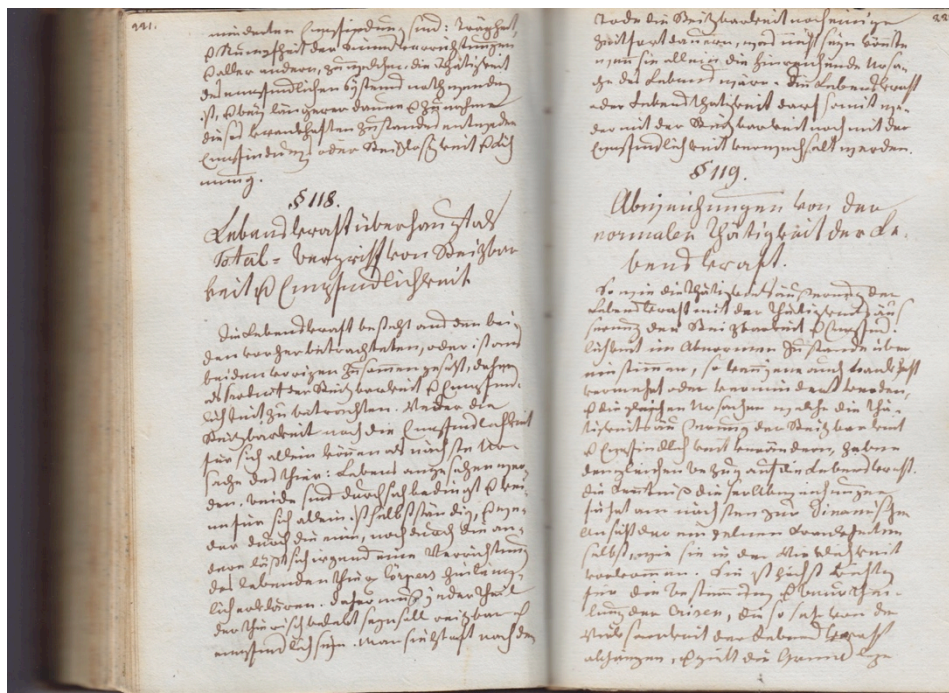 221.
minderten Empfindung sind: Trägheit,
Stumpfheit der Sinnesverrichtungen,
aller andern, zu welchen die Thätigkeit
des empfindlichen Systems nothwendig
ist, bey längerer Dauer Zunahme
dieses krankhaften Zustandes entweder
Empfindungs oder Reitzlosigkeit
mung.
§ 118.
Lebenskraft überhaupt als
Total-Begriff von Reitzbar
keit Empfindlichkeit
Die Lebenskraft besteht aus den bei-
den vorher betrachteten, oder ist aus
beiden vorigen zusammengesetzt, daher
als Produkt der Reitzbarkeit Empfind-
lichkeit zu betrachten. Weder die
Reitzbarkeit noch die Empfindlichkeit
für sich allein können als nächste Ur-
sache des thier: Lebens angesehen wer-
den. Beide sind durch sich bedingt kei-
ne für sich allein ist selbstständig, we-
der durch die eine, noch durch die an-
dere läßt sich irgend eine Verrichtung
des lebenden thier Körpers
lich erklären. Daher muß jeder Theil
der thierisch belebt seyn soll reitzbar
empfindlich seyn. Man sieht oft nach dem
Tode die Reitzbarkeit noch einige
Zeit fortdauern, was nicht seyn könnte
wenn sie allein die hinreichende Ursa-
che des Lebens wäre. Die Lebenskraft
oder Lebensthätigkeit darf somit we-
der mit der Reitzbarkeit noch mit der
Empfindlichkeit verwechselt werden.
§ 119.
Abweichungen von der
normalen Thätigkeit der Le-
benskraft.
So wie die Thätigkeitsäußerung der
Lebenskraft mit der Thätigkeitsäus
serung der Reitzbarkeit Empfind-
lichkeit im Abnormen Zustande über
einstimmen, so können auch krankhaft
vermehrt oder vermindert werden,
die gleichen Ursachen welche die Thä-
tigkeitsäusserung der Reitzbarkeit
Empfindlichkeit verändern, haben
den gleichen Bezug auf die Lebenskraft.
Die Kenntniß dieser Abweichungen
führt am nächsten zur
Ansicht der einzelnen Krankheiten
selbst, wie sie in der Wirklichkeit
vorkommen. Sie ist höchst wichtig
für die Bestimmung Beurthei-
lung der Crisen, die so sehr von der
Wirksamkeit der Lebenskraft
abhangen, die Grundlage